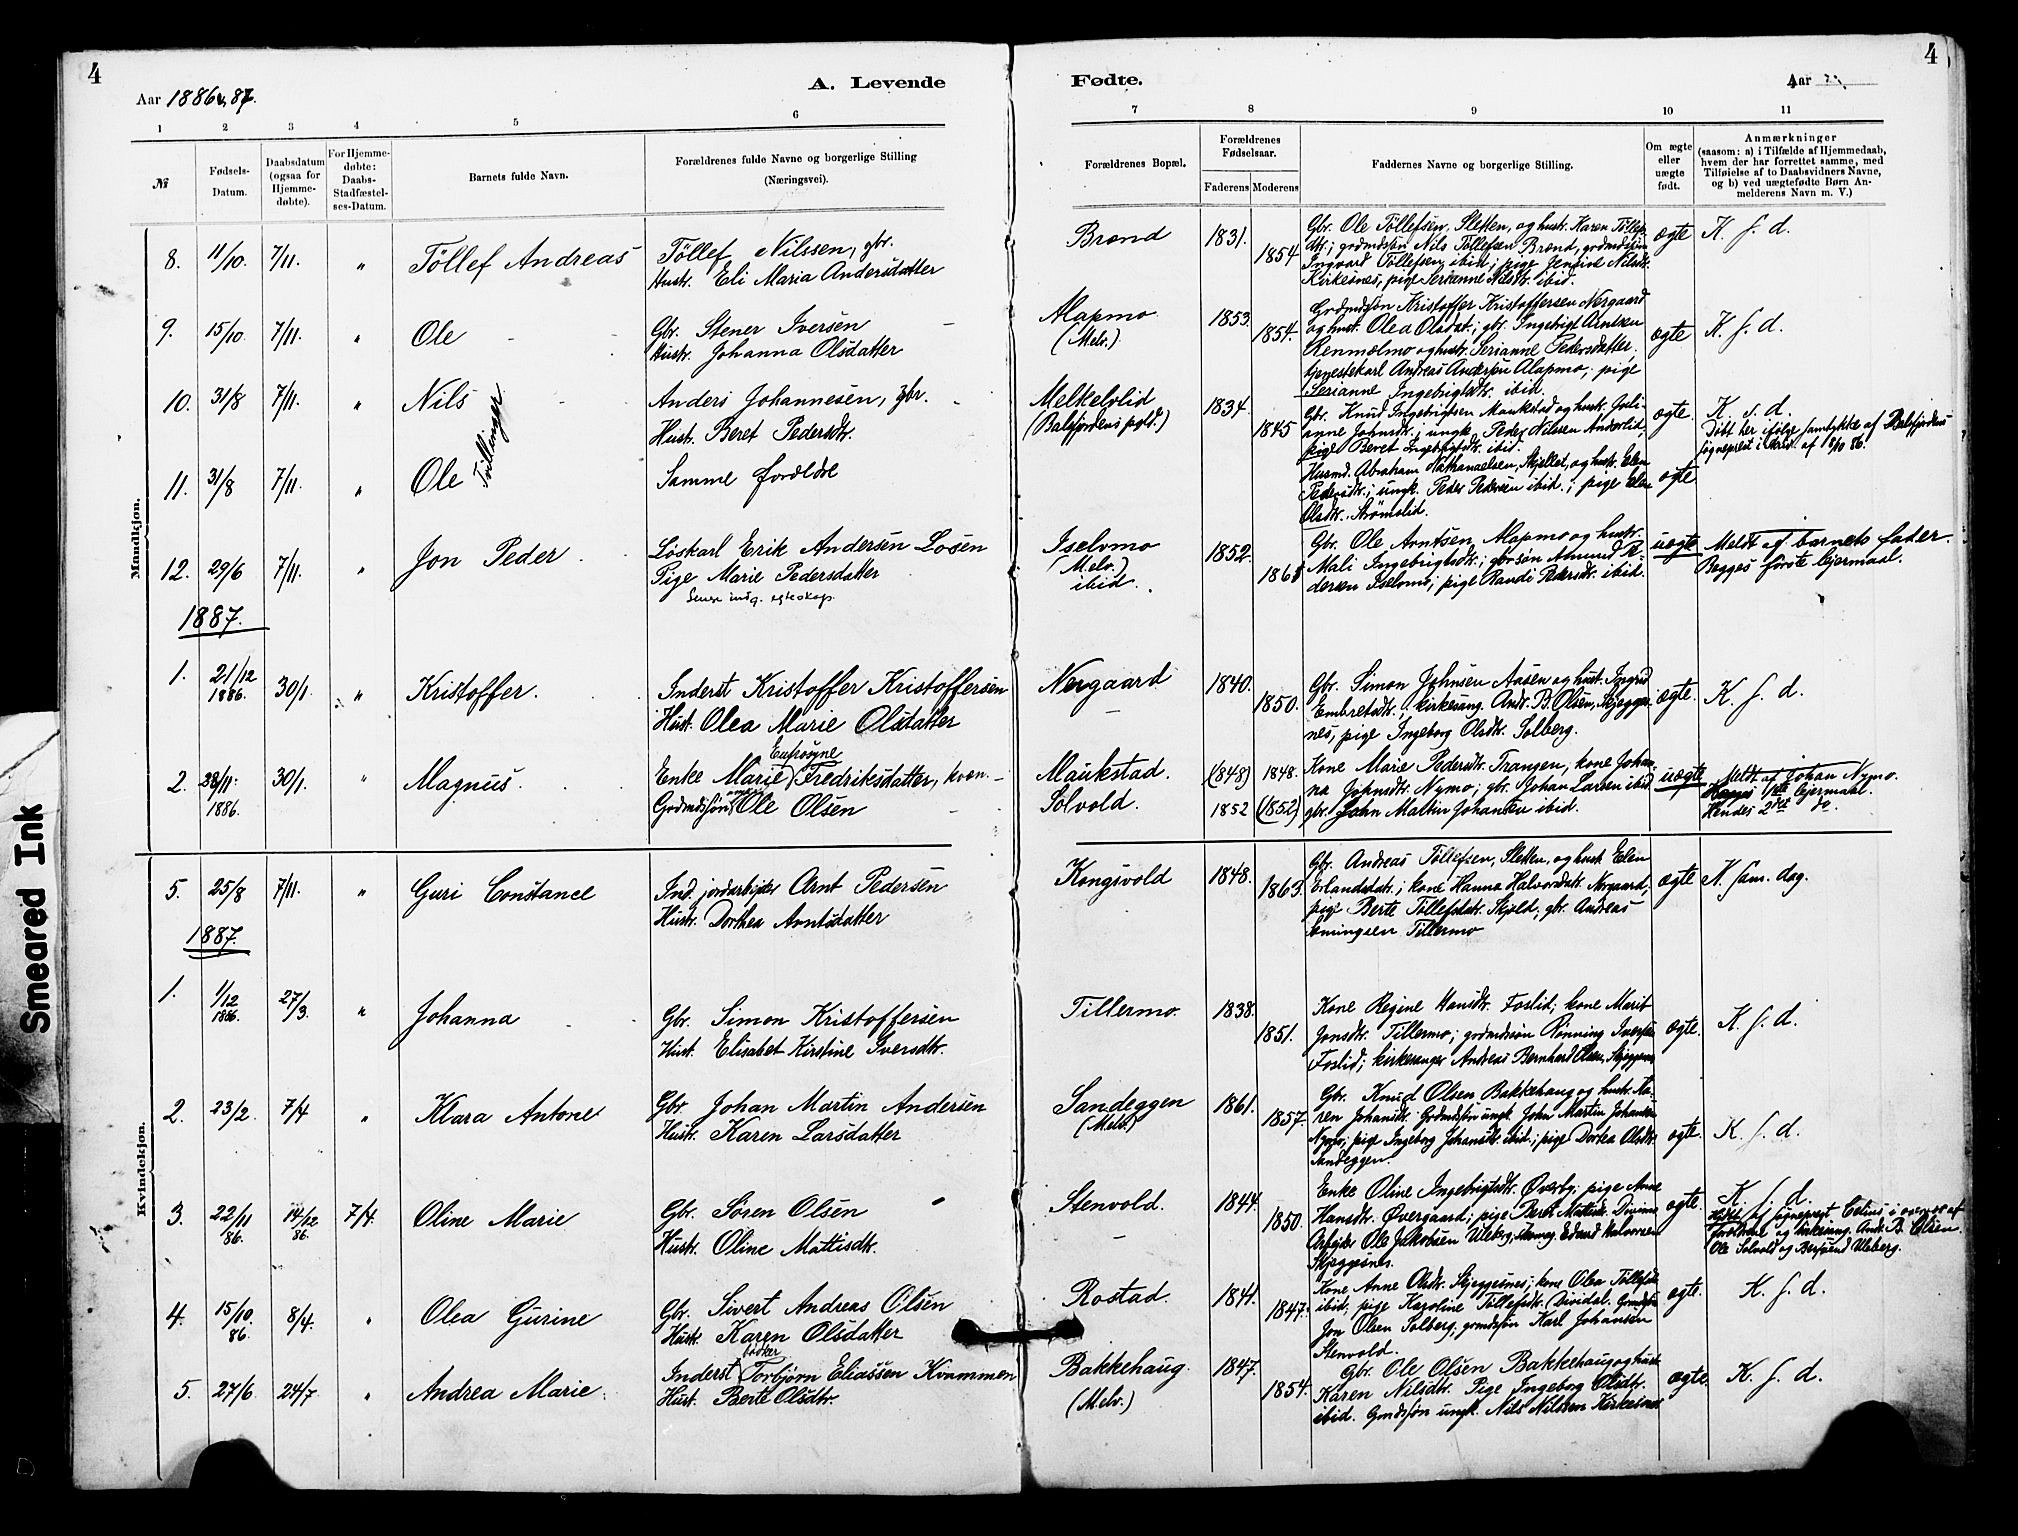 4
4
Aar 1886 & 87.
A. Levende
Fødte.
Aar
1 2 3 4 5 6 7 8 9 10 11
№
Fødsels-
Datum.
Daabsdatum
(ogsaa for
Hjemme-
døbte).
For Hjemme-
døbte:
Daabs-
Stadfæstel-
ses-Datum.
Barnets fulde Navn.
Forældrenes fulde Navne og borgerlige Stilling
(Næringsvei).
Forældrenes Bopæl.
Forældrenes
Fødselsaar.
Faderens Moderens
Faddernes Navne og borgerlige Stilling.
Om ægte
eller
uægte
født.
Anmærkninger
(saasom: a) i Tilfælde af Hjemmedaab,
hvem der har forrettet samme, med
Tilføielse af to Daabsvidners Navne,
og b) ved uægtefødte Børn An-
melderens Navn m. V.)
Mandkjøn.
8. 11/10. 7/11. " Töllef Andreas
Töllef Nilssen, gbr.
Hustr. Eli Maria Andersdatter
Brend 1831. 1854
Gbr. Ole Töllefsen, Sletten, og hustr. Karen Töllef-
dtr.; grdmdsjön Nils Töllefsen Brend, grdmdsjön
Ingvard Töllefsen ibid; pige Jensine Nilsdtr.
Kirkesnes, pige Serianne Nilsdtr. ibid.
ægte K. f. d.
9. 15/10. 7/11. " Ole
Gbr. Stener Iversen
Hustr. Johanna Olsdatter
Alapmo
(Melv.)
1853. 1854.
Grdmdsjön Kristoffer Kristoffersen Nergaard
og hust. Olea Olsdat.; gbr. Ingebrigt Arntsen
Renmælmo og hustr. Serianne Pedersdatter,
tjenestekarl Andreas Andersen Alapmo, pige
Serianne Ingebrigtsdtr. ibid.
ægte K. f. d.
10. 31/8 7/11. " Nils
Tvillinger
Anders Johannesen, gbr.
Hustr. Beret Pedersdtr.
Melkelvlid
(Balsfjordens pgld.)
1834. 1845
Gbr. Knud Ingebrigtsen Maukstad og hustr. Juli-
anne Johnsdtr.; ungk. Peder Nilsen Anderlid,
pige Beret Ingebrigtsdtr. ibid.
ægte. K. s. d.
Döbt her ifölge samtykke af Balsfjordens
sogneprest i skriv. af 8/10 86.
11. 31/8 7/11. " Ole
Samme foreldre
Husmd. Abraham Nathanaelsen, Skjellet, og hustr. Elen
Pedersdtr.; ungk. Peder Pedersen ibid.; pige Elen
Olsdtr. Strömslid.
ægte
12. 29/6 7/11. " Jon Peder
Löskarl Erik Andersen Losen
Pige Marie Pedersdatter
Senere indg. egteskap.
Iselvmo
(Melv.)
ibid.
1852.
Gbr. Ole Arntsen, Alapmo og hustr.
Mali Ingebrigtsdtr.; gbrsön Amund Pe-
dersen Iselvmo; pige Randi Pedersdtr. ibid.
uægte Meldt af barnets fader.
Begges förste leiermaal.
1887.
1. 21/12 1886. 30/1. " Kristoffer.
Inderst Kristoffer Kristoffersen
Hust. Olea Marie Olsdatter
Nergaard
1840. 1850.
Gbr. Simon Johnsen Aasen og hust. Ingrid
Embretsdtr.; kirkesang. Andr. B. Olsen, Skjegges-
nes, pige Ingeborg Olsdtr. Solberg.
ægte. K. f. d.
2. 28/11. 1886. 30/1. " Magnus.
Eufrosyne
Enke Marie Fredriksdatter, kvæn.
Grdmdsjön Ole Olsen
Maukstad.
Solvold.
(1848) 1848.
1852 (1852)
Kone Marie Pedersdtr. Trangen; kone Johan-
na Johnsdtr. Nymo; gbr. Johan Larsen ibid
gbr. John Martin Johansen ibid.
uægte Meldt af Johan Nymo.
1ste leiermaal.
Hendes 2det do
Kvindekjøn.
5. 25/8 7/11. " Guri Constance
Ind. jordarbejder Arnt Pedersen
Hustr. Dorthea Arntsdatter
Kongsvold
1848. 1863.
Gbr. Andreas Töllefsen, Sletten, og hust. Elen
Erlandsdatr.; kone Hanna Halvorsdatr. Nergaard,
pige Berte Töllefsdatr. Skjold; gbr. Andreas
Tillermo
ægte K. sam. dag.
1887.
1. 1/12 1886. 27/3. " Johanna
Gbr. Simon Kristoffersen
Hust. Elisabet Kirstine Iversdtr.
Tillermo.
1838. 1851.
Kone Regine Hansdtr. Foslid; kone Marit
Jonsdtr. Tillermo; grdmdsön Rönning Iversen
Foslid; kirkesanger Andreas Bernhard Olsen, Skjeggesnes
ægte. K. f. d.
2. 23/2. 7/4 " Klara Antone
Gbr. Johan Martin Andersen
Hustr. Karen Larsdatter
Sandeggen
(Melv.)
1861. 1857.
Gbr. Knud Olsen Bakkehaug og hustr. Ma-
ren Johansdtr. Grdmdsjön ungk. John Martin Johansen
Nymo; pige Ingeborg Johansdtr. ibid.; pige Dortea Olsdtr.
Sandeggen.
ægte. K. f. d.
3. 22/11 86. 14/12 86. 7/4. Oline Marie
Gbr. Sören Olsen
Hustr. Oline Mattisdtr.
Stenvold.
1844. 1850.
Enke Oline Ingebrigtsdtr. Överby; pige Anne
Hansdtr. Övergaard; pige Beret Mattisd. Divime
Arbejder Ole Jakobsen Uleberg; Edvard Halvorsen
Skjeggesnes.
ægte. K. f. d.
af sogneprest i overvær af
foreldrene og kirkesang. Andr. B. Olsen.
Ole Solvold og Berhard Uleberg.
4. 15/10 86. 8/4. " Olea Gurine
Gbr. Sivert Andreas Olsen
Hust. Karen Olsdatter
Rostad.
1841. 1847.
Kone Anne Olsdtr. Skjeggesnes; kone Olea Töllefsdtr.
ibid; pige Karoline Töllefsdtr. Dividal. Grmdsjön
Jon Olsen Solberg; grmdsjön Karl Johansen
Stenvold.
ægte. K. f. d.
5. 27/6. 24/7. " Andrea Marie.
bödker
Inderst Torbjörn Eliassen Kvammen
Hust. Berte Olsdtr.
Bakkehaug.
(Melv.)
1847. 1854.
Gbr. Ole Olsen Bakkehaug og hust.
Karen Nilsdtr. Pige Ingeborg Olsdtr.
ibid. Grmdsjön ungk. Nils Nilssen Kirkesnes
ægte. K. f. d.
Smeared Ink